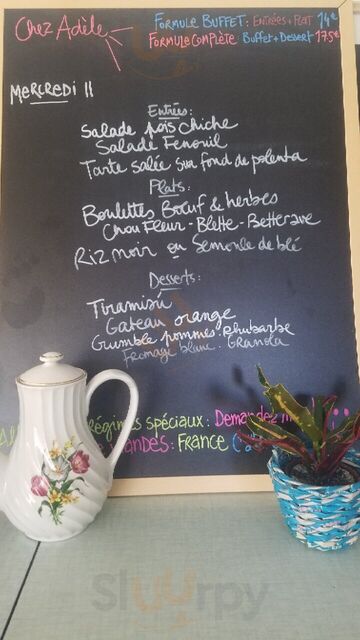 Chez Adèle
FORMULE BUFFET : ENTRÉES + PLAT 14€
FORMULE COMPLÈTE Buffet + Dessert 17.5€
MERCREDI 11
Entrées:
Salade pois chiche
Salade Fenouil
Tarte salée sur fond de polenta
Plats:
Boulettes Boeuf & herbes
Chou Fleur - Blette - Betterave
Riz noir ou Semoule de blé
Desserts:
Tiramisú
Gateau orange
Crumble pommes. Rhubarbe
Fromage blanc. Granola
Régimes spéciaux : Demandez
ANDES : FRANCE
Sluurpy